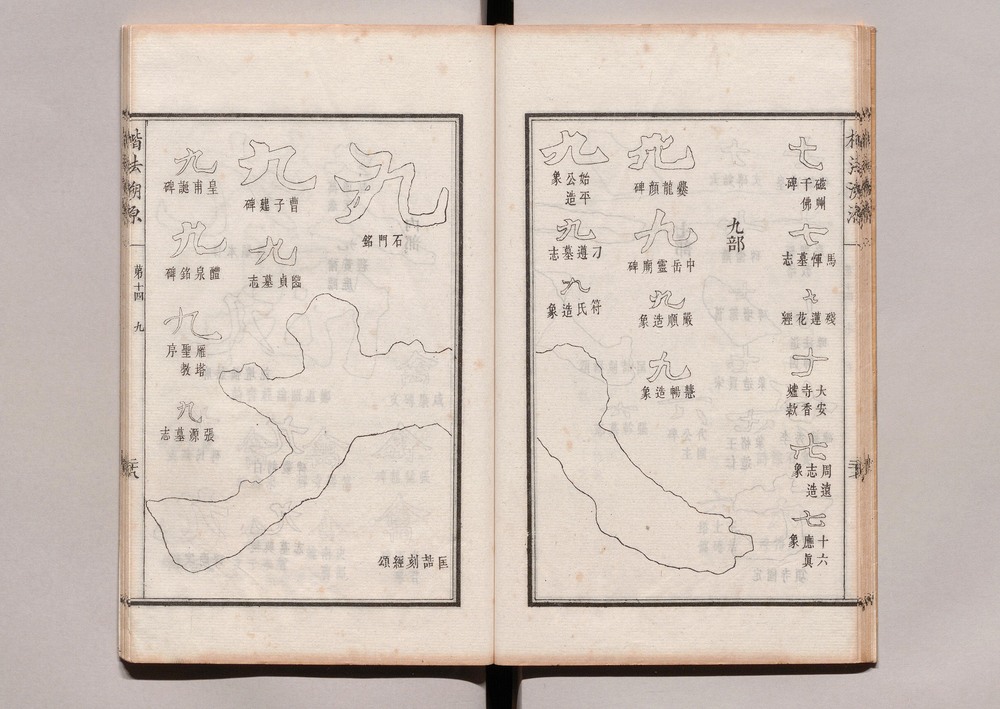 七
磁州千佛碑
七
馬惲墓志
七
殘蓮花經
七
大安寺香爐款
七
周遠志造象
七
十六應眞象
九部
九
爨龍顏碑
九
中岳靈廟碑
九
嚴順造象
九
慧暢造象
九
始平公造象
九
刁遵墓志
九
符氏造象
九
匡喆刻經頌
九
石門銘
九
曹子建碑
九
貞墓志
九
皇甫誕碑
九
醴泉銘碑
九
雁塔聖教序
九
張源墓志
楷法溯源
第十四
九